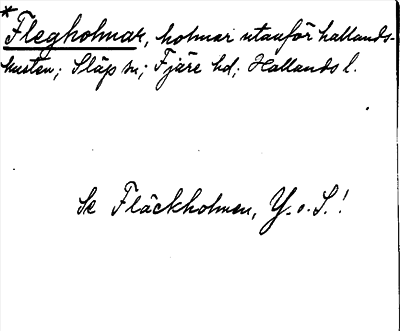 * Flegholmar, holmar utanför hallands-
kusten; Släp sn; Fjäre hd; Hallands l.
Se Fläckholmen, Y. o. S.!